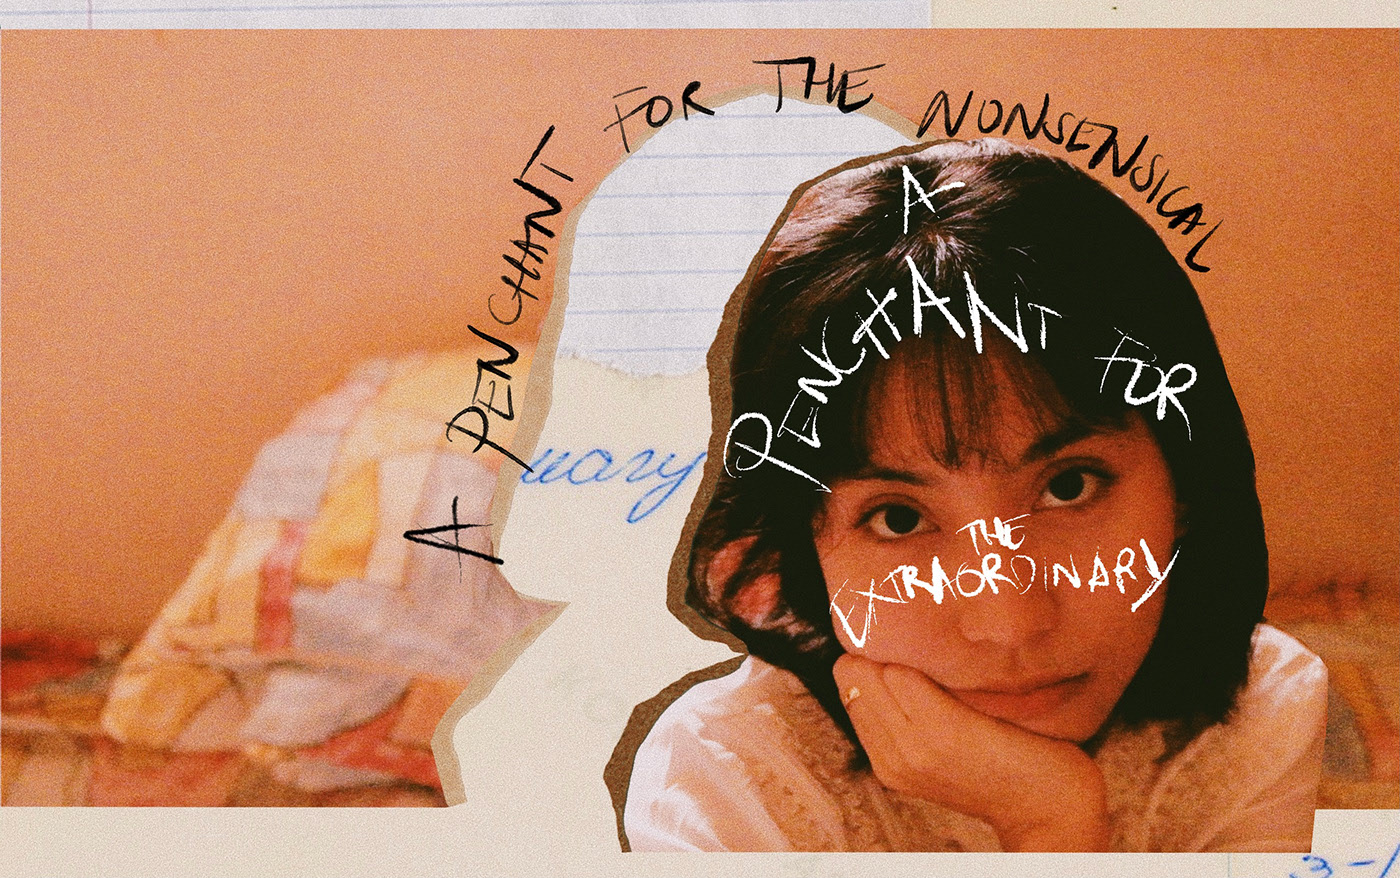 A PENCHANT FOR THE NONSENSICAL
A
PENCHANT FOR
THE
EXTRAORDINARY
3-1